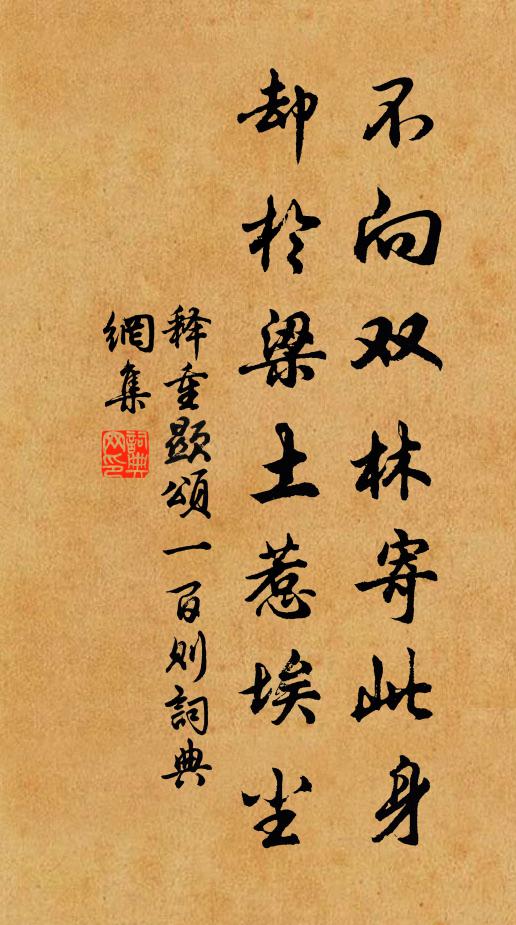 不向双林寄此身
却於梁土惹埃尘
释重顕頌一百则詞典
網集
詞典网印